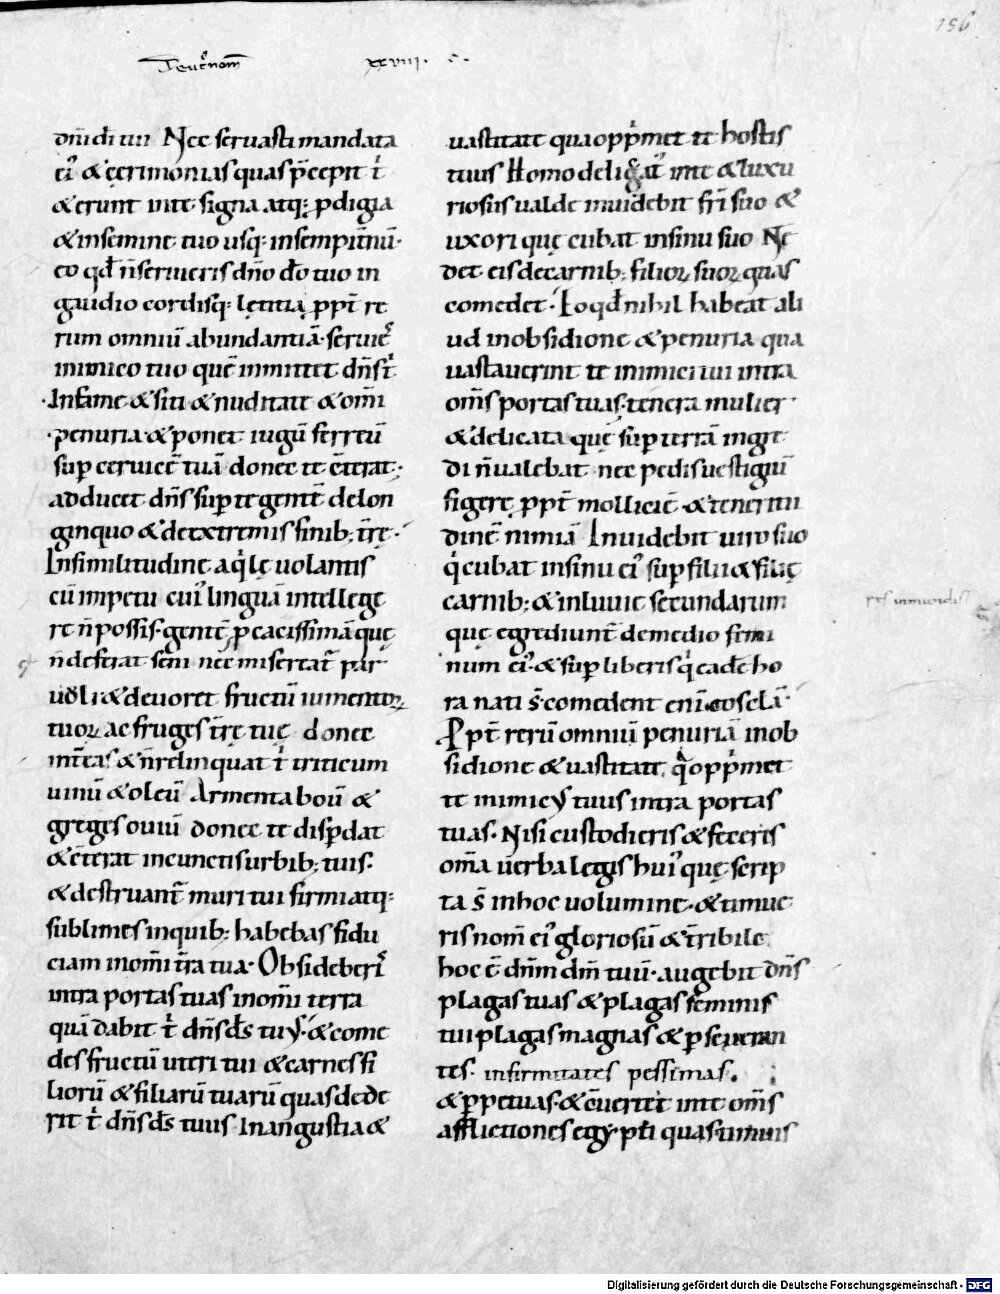 156
Deut̄nom̄ xxviii. c.
dn̄i dī tui Nec servasti mandata
ei' & cęrimonias quas p̄cepit t̄
& erunt inte signa atq; pdigia
& insemine tuo usq; insempit̄nū.
eo qđ n̄ servieris dn̄o dō tuo in
gaudio cordisq; lętitia ppt̄ re
rum omniū abundantiā. servieſ
inimico tuo quē inmittet dn̄s t̄
Infame & siti & nuditate & om̄i
penuria & ponet iugū ferreū
sup cervicē tuā donec te c̄terat.
adducet dn̄s sup te gentē delon
ginquo & deextremis finib; t̄rę.
Insimilitudine aq̄lę volantis
cū impetu cui' linguā intellege
re n̄ possis. gentē pcacissimā quę
n̄ deferat seni nec misereat̄ par
vuli & devoret fructū iumentoꝝ
tuoꝝ ac fruges t̄rę tuę donec
int̄eas & n̄ relinquat t̄ triticum
vinū & oleū Armenta boū &
greges oviū donec te disp̄dat
& c̄terat incunctis urbib; tuis.
& destruant̄ muri tui firmi atq;
sublimes inquib; habebas fidu
ciam inom̄i t̄ra tua. Obsideberiſ
intra portas tuas inom̄i terra
quā dabit t̄ dn̄s ds̄ tuus. & come
des fructū uteri tui & carnes fi
liorū & filiarū tuarū quas dede
rit t̄ dn̄s ds̄ tuus Inangustia &
vastitate qua opp̄met te hostis
tuus Homo delicat' inte & luxu
riosus valde invidebit fr̄i suo &
uxori quę cubat insinu suo Ne
det eis decarnib; filioꝝ suoꝝ quas
comedet. Eo qđ nihil habeat ali
ud inobsidione & penuria qua
vastaverint te inimici tui intra
om̄s portas tuas. tenera mulier
& delicata quę sup terrā ingre
di n̄ valebat nec pedis vestigiū
figere ppt̄ molliciē & teneritu
dinē nimiā Invidebit viro suo
q̄ cubat insinu ei' sup filii & filię
carnib; & inluvie secundarum
quę egrediunt̄ demedio femi
num ei'. & sup liberis q̄ eadē ho
ra nati s̄. comedent eni eos clā
Ppt̄ rerū omniū penuriā inob
sidione & vastitate q̄ opp̄met
te inimicus tuus intra portas
tuas. Nisi custodieris & feceris
om̄a verba legis hui' quę scrip
ta s̄ inhoc volumine. & timue
ris nom̄ ei' gloriosū & t̄ribile
hoc ē dn̄m dm̄ tuū. augebit dn̄s
plagas tuas & plagas seminis
tui plagas magnas & pseveran
tes. infirmitates pessimas.
& ppetuas. & c̄vertet inte om̄s
afflictiones egypti quas timuis